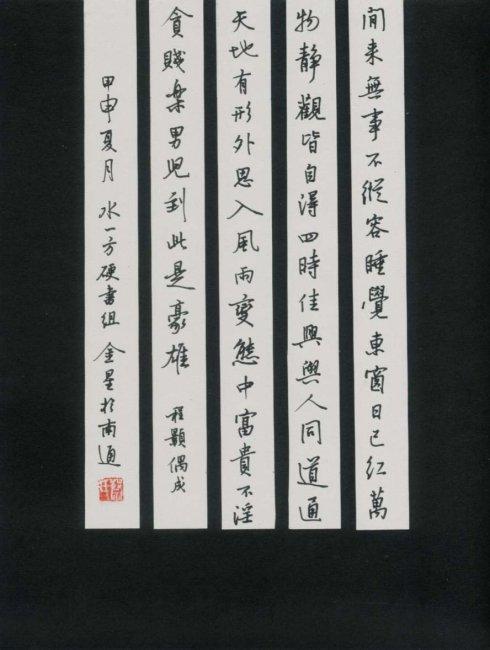 閒来無事不從容睡覺東窗日已紅萬
物靜觀皆自淂四時佳興與人同道通
天地有形外思入風雨變態中富貴不淫
貪賤樂男兒到此是豪雄 程顥偶成
甲申夏月 水一方硬書組 金星於南通